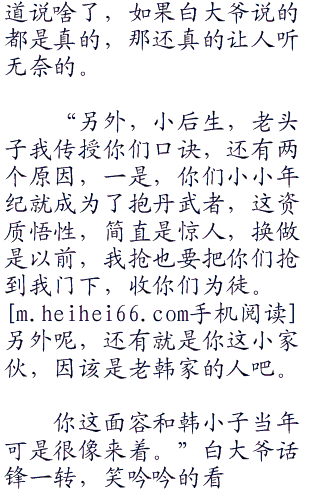 道说啥了，如果白大爷说的
都是真的，那还真的让人听
无奈的。
“另外，小后生，老头
子我传授你们口诀，还有两
个原因，一是，你们小小年
纪就成为了抱丹武者，这资
质悟性，简直是惊人，换做
是以前，我抢也要把你们抢
到我门下，收你们为徒。
[m.heihei66.com手机阅读]
另外呢，还有就是你这小家
伙，因该是老韩家的人吧。
你这面容和韩小子当年
可是很像来着。”白大爷话
锋一转，笑吟吟的看